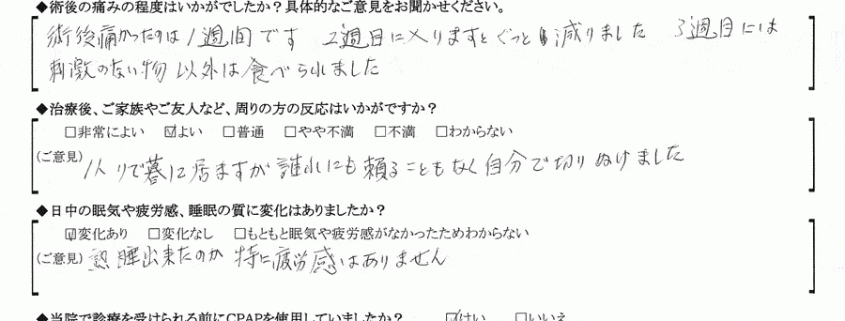 ◆術後の痛みの程度はいかがでしたか？具体的なご意見をお聞かせください。
術後痛かったのは1週間です 2週目に入りますとぐっと減りました 3週目には
刺激のない物以外は食べられました
◆治療後、ご家族やご友人など、周りの方の反応はいかがですか？
□非常によい ☑よい □普通 □やや不満 □不満 □わからない
(ご意見) 1人りで暮して居ますが誰れにも頼ることもなく自分で切りぬけました
◆日中の眠気や疲労感、睡眠の質に変化はありましたか？
☑変化あり □変化なし □もともと眠気や疲労感がなかったためわからない
(ご意見) 熟睡出来たのか 特に疲労感はありません
◆当院で診療を受けられる前にCPAPを使用していましたか？ ☑はい □いいえ